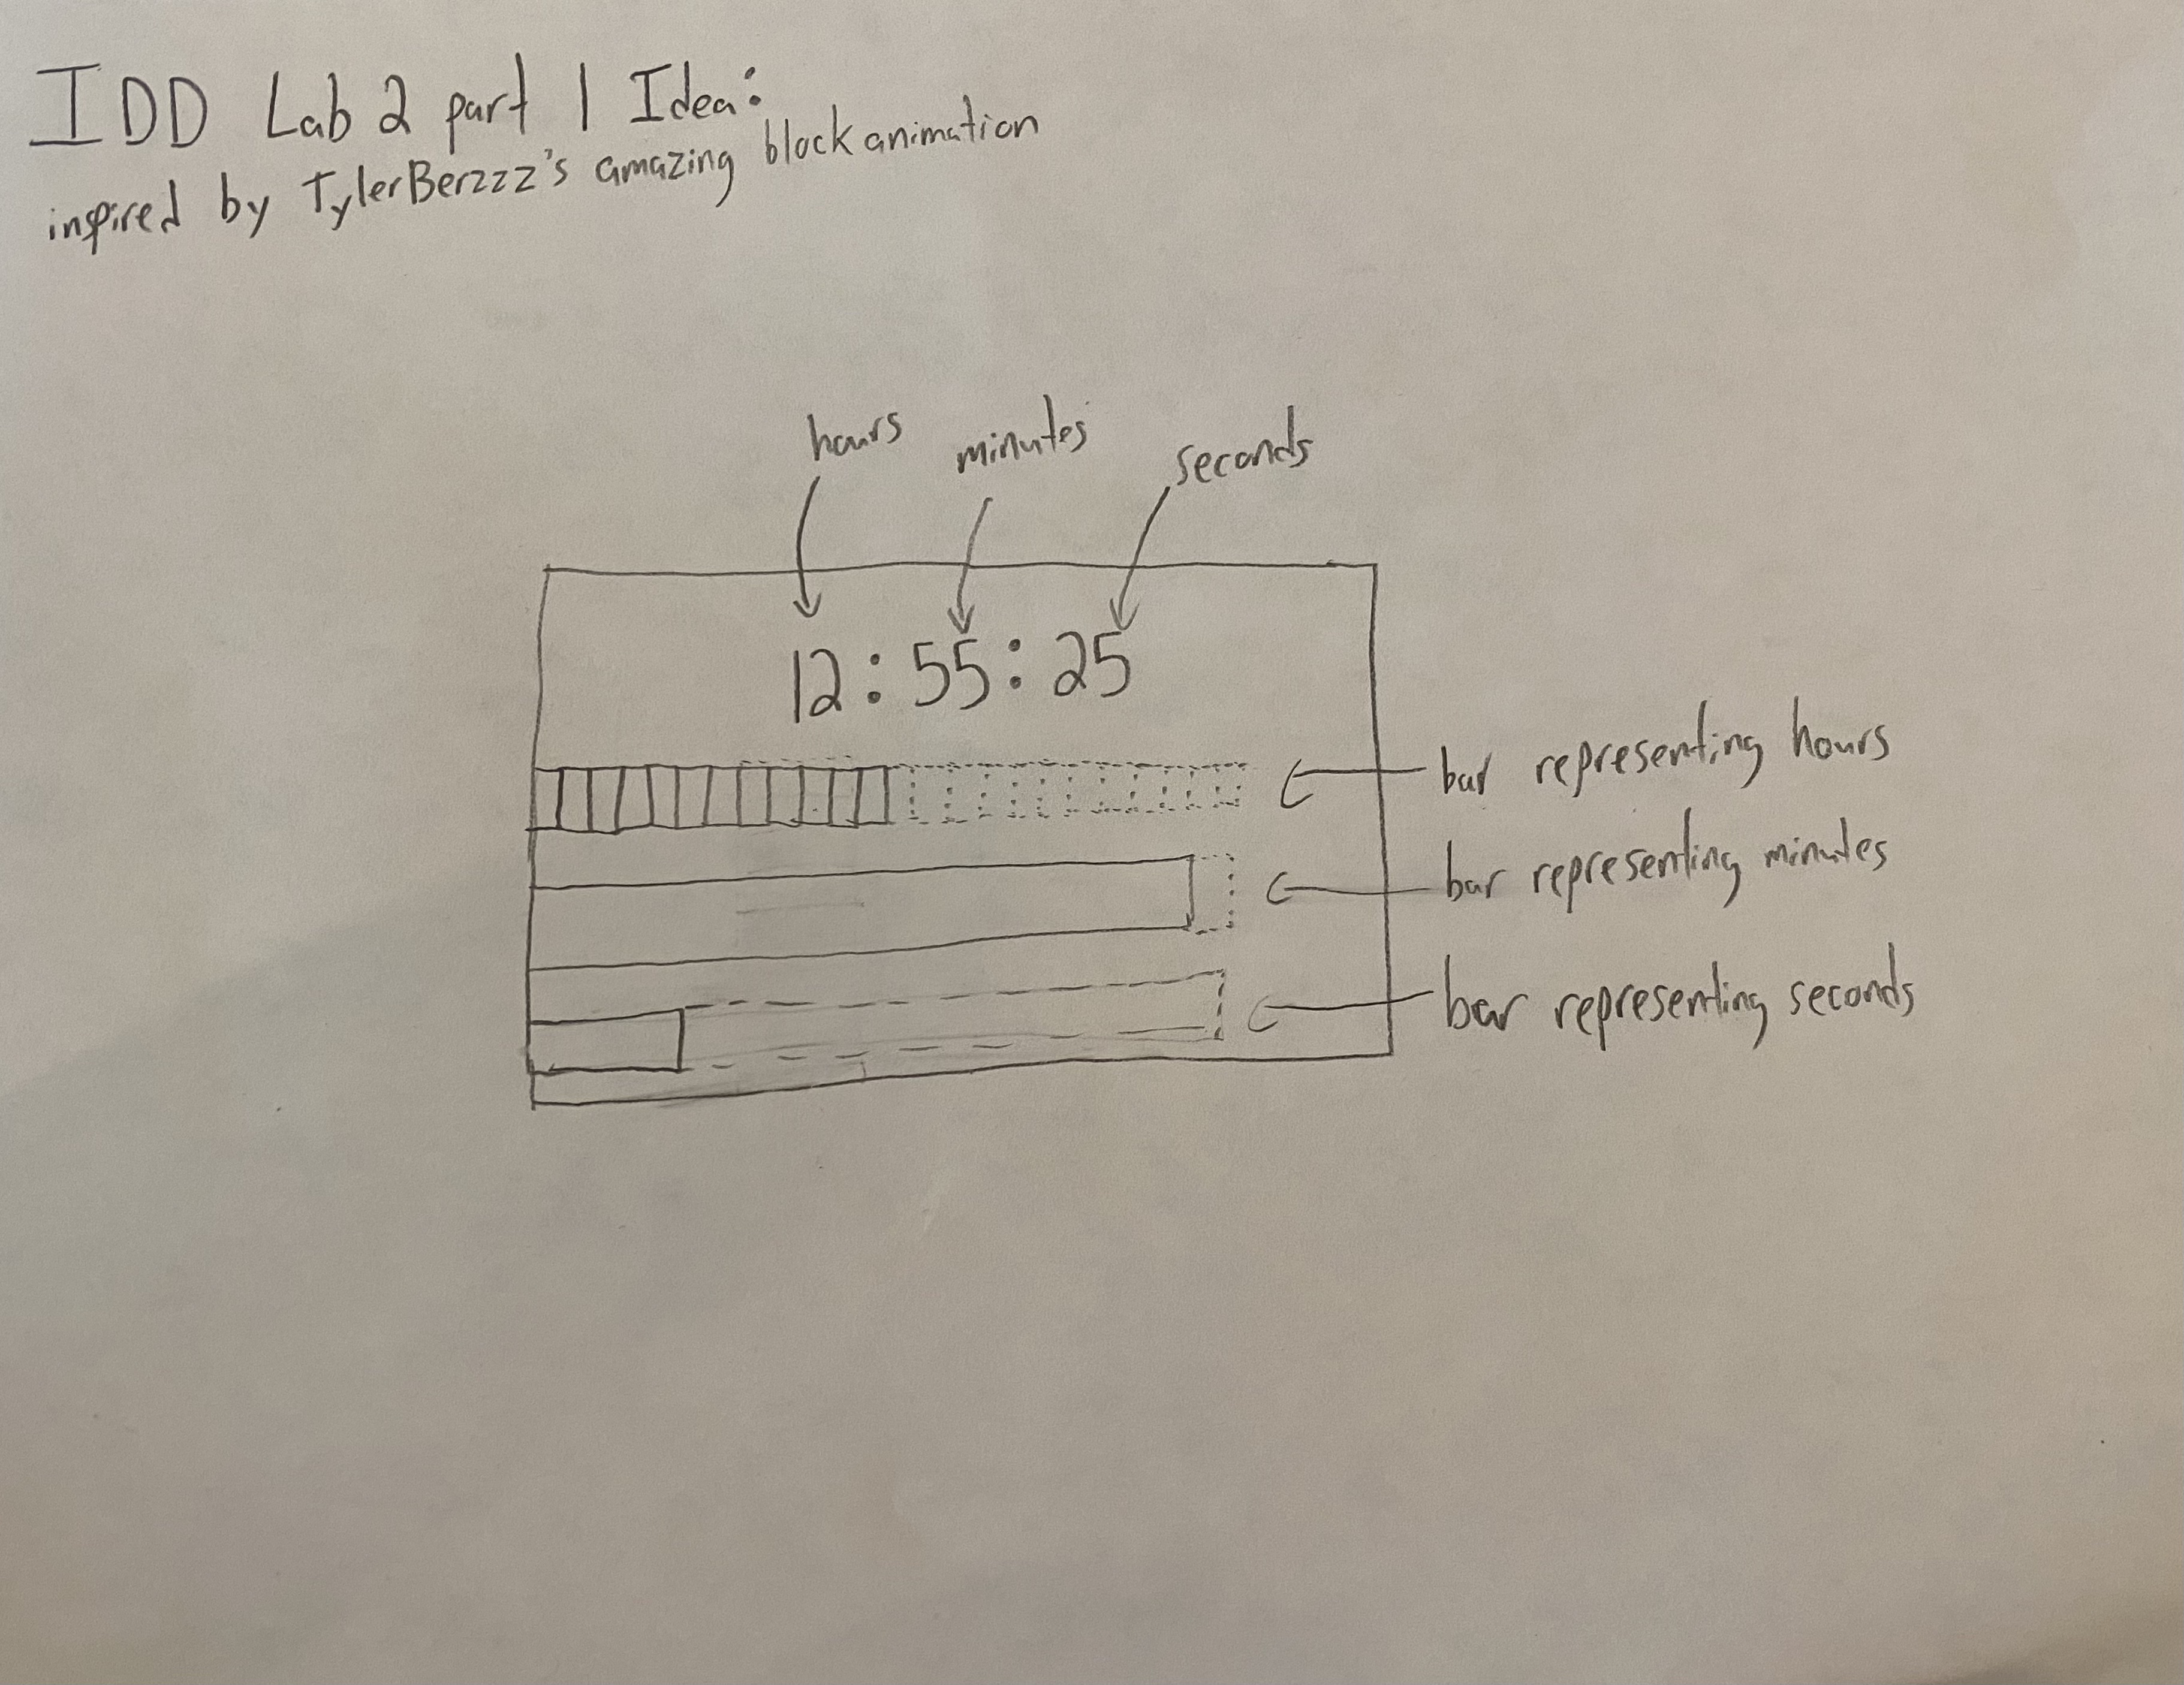 IDD Lab 2 part 1 Idea:
inspired by TylerBerzzz's amazing block animation
hours minutes seconds
12:55:25
bar representing hours
bar representing minutes
bar representing seconds